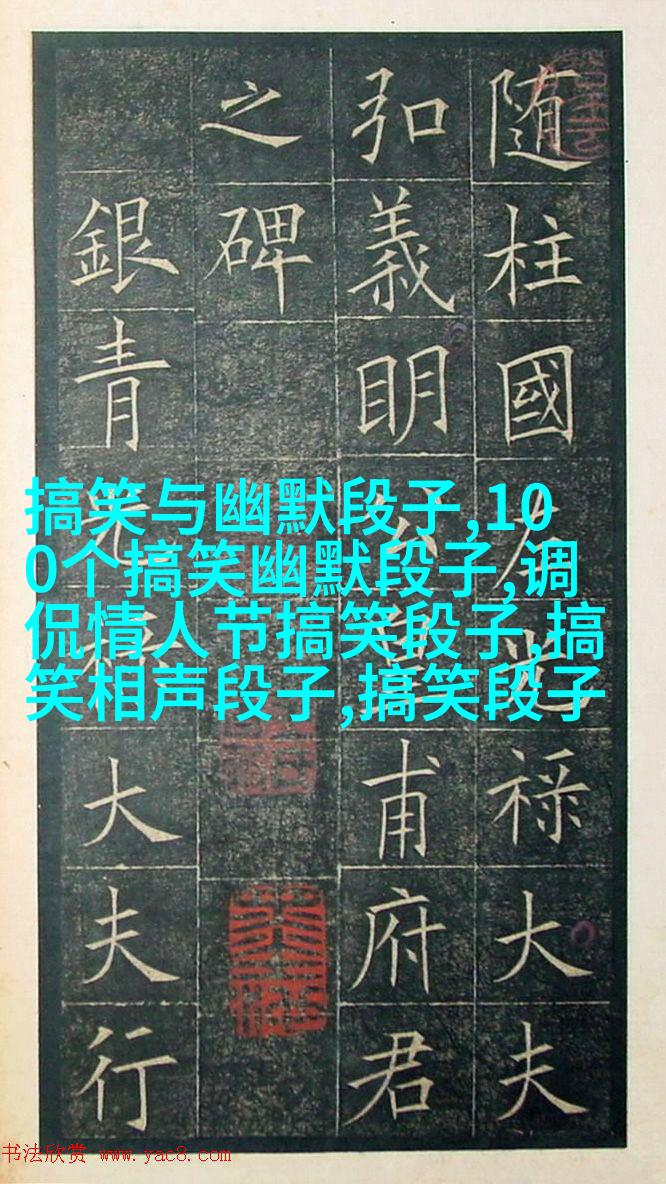 随柱國左光祿大夫
弘義明公甫府君
之碑
銀青光大夫行
搞笑与幽默段子,10
0个搞笑幽默段子,调
侃情人节搞笑段子,搞
笑相声段子,搞笑段子
书法欣赏 www.yac8.com